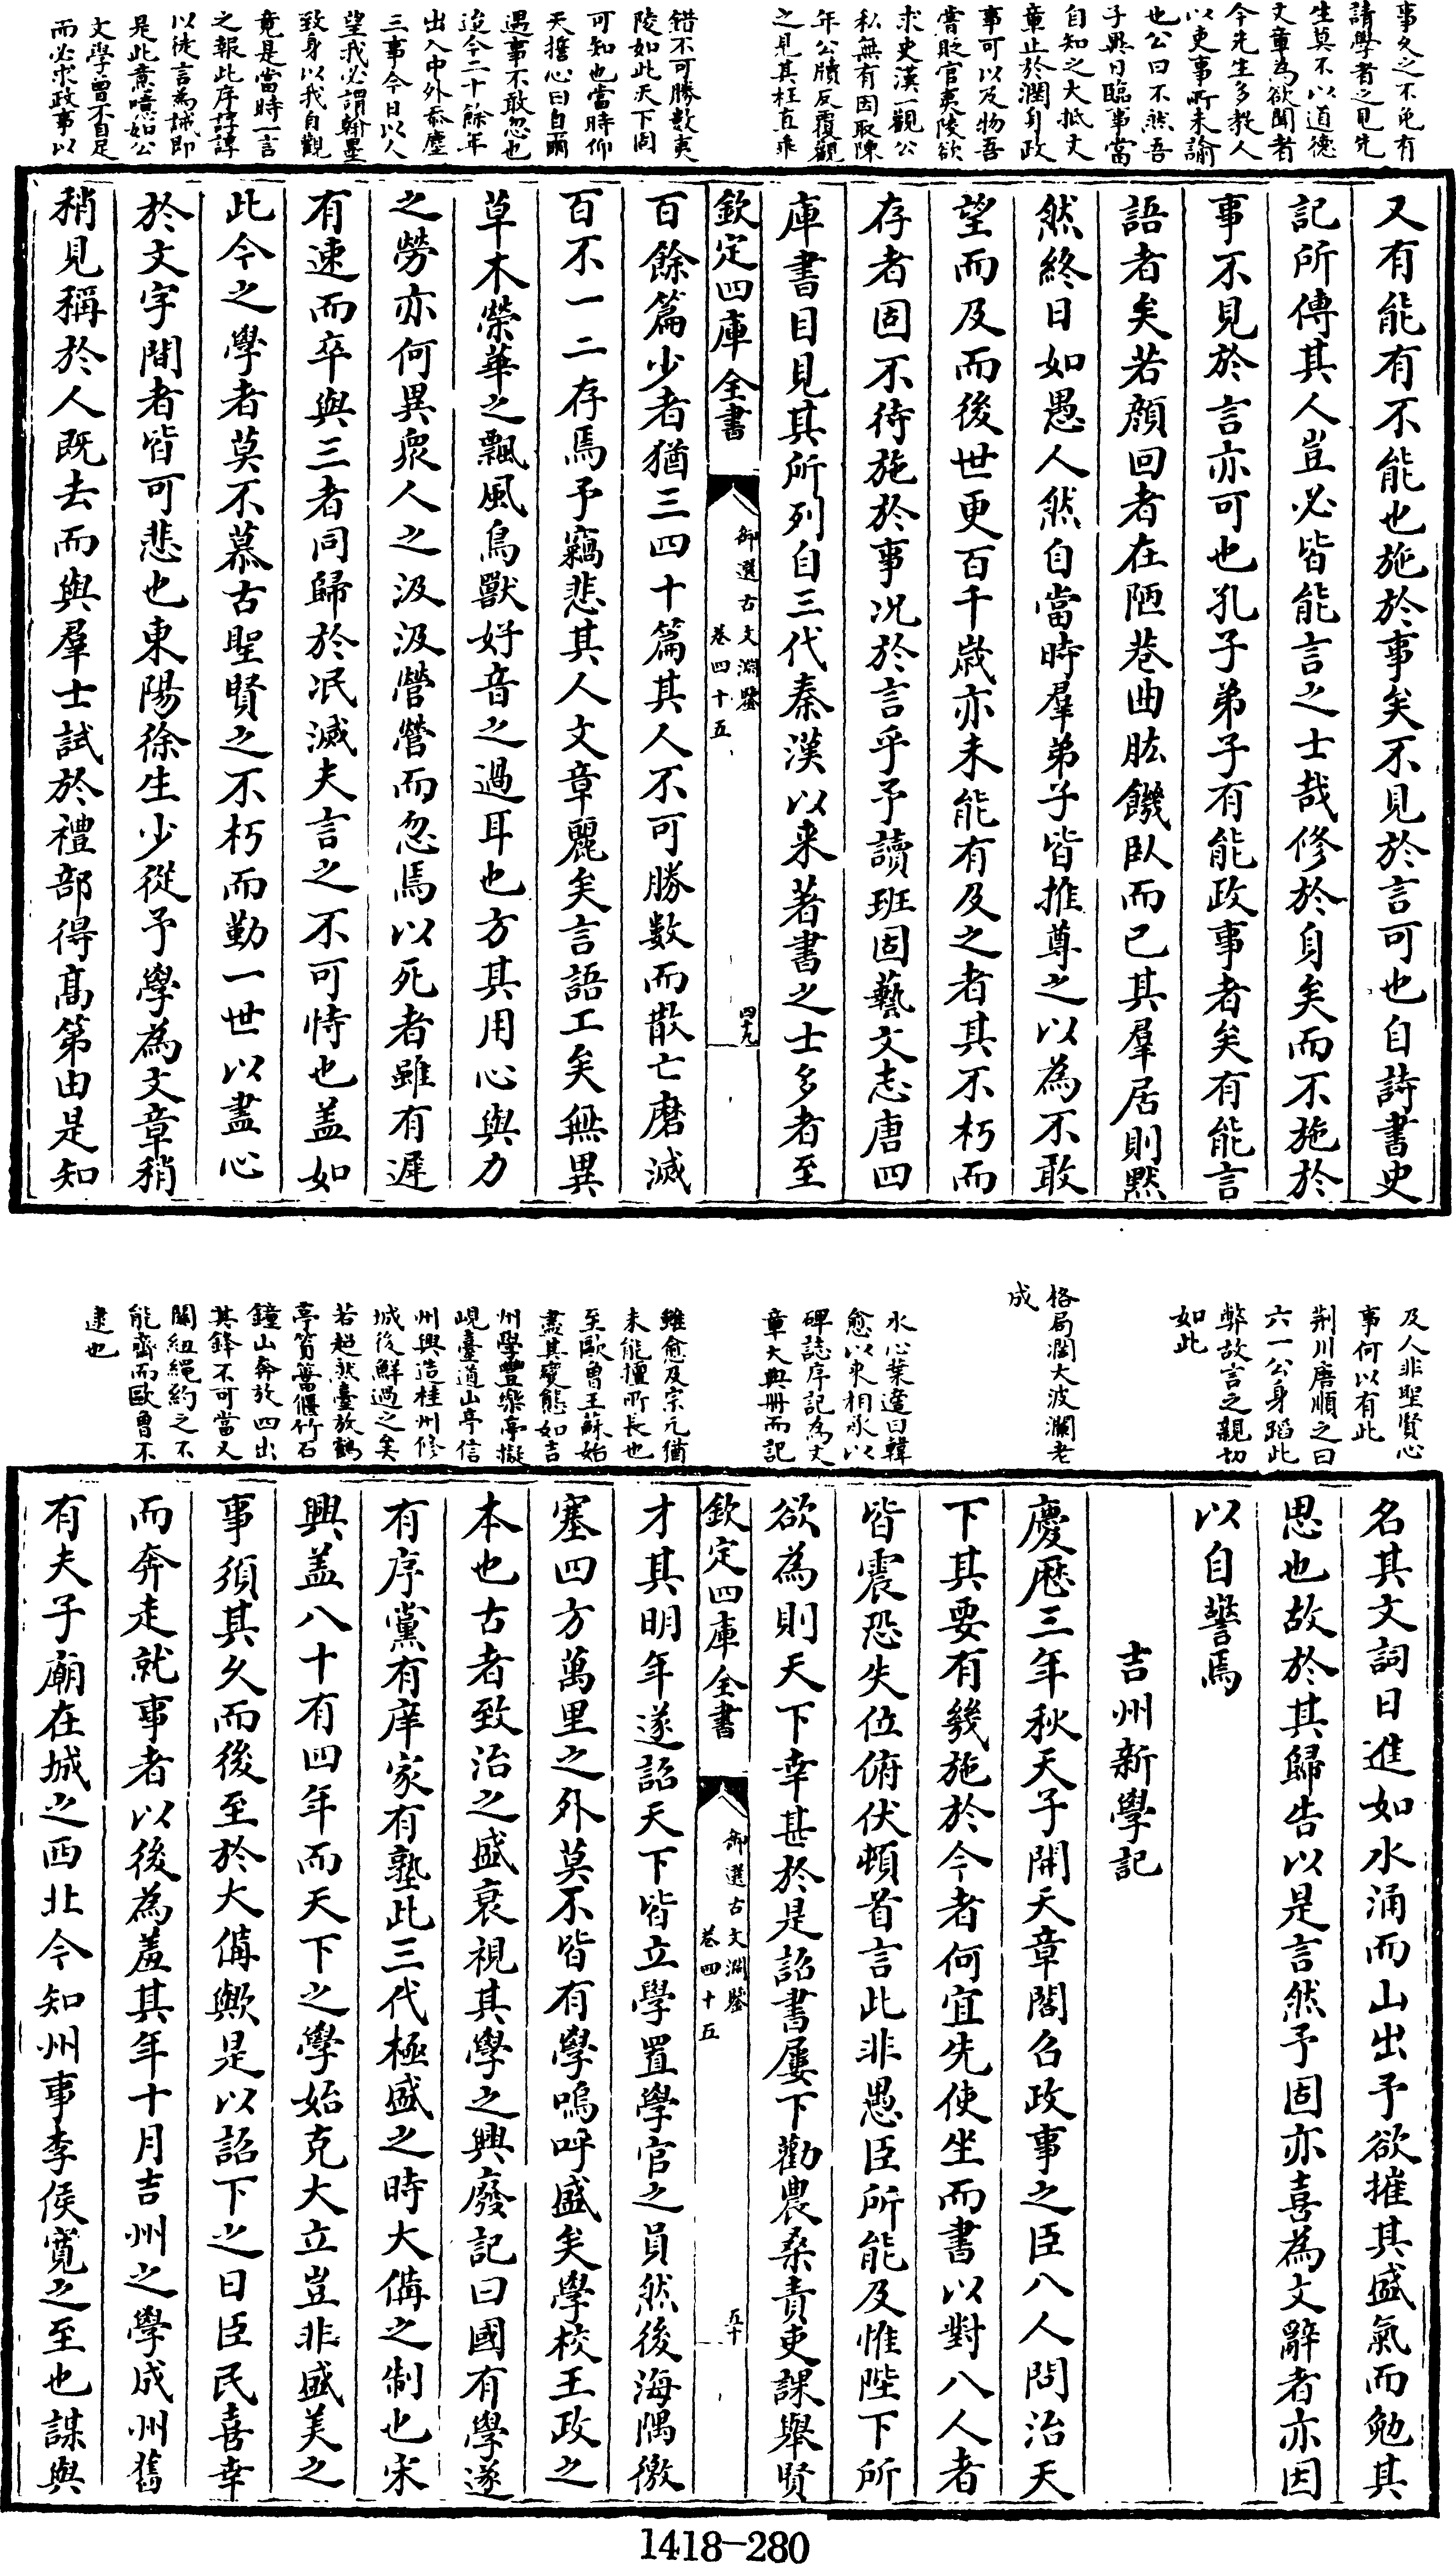 事久之不免有
請學者之見先
生莫不以道德
文章為欲聞者
今先生多教人
以吏事所未諭
也公曰不然吾
子異日臨事當
自知之大抵文
章止於潤身政
事可以及物吾
嘗貶官夷陵欲
求史漢一觀公
私無有因取陳
年公牘反覆觀
之見其枉直乖
錯不可勝數夷
陵如此天下固
可知也當時仰
天誓心曰自爾
遇事不敢忽也
迨今二十餘年
出入中外忝塵
三事今日以人
望我必謂翰墨
致身以我自觀
竟是當時一言
之報此序諄諄
以徒言為誡即
是此意噫如公
文學曾不自足
而必求政事以
又有能有不能也施於事矣不見於言可也自詩書史
記所傳其人豈必皆能言之士哉修於身矣而不施於
事不見於言亦可也孔子弟子有能政事者矣有能言
語者矣若顏回者在陋巷曲肱饑臥而已其羣居則默
然終日如愚人然自當時羣弟子皆推尊之以為不敢
望而及而後世更百千歲亦未能有及之者其不朽而
存者固不待施於事況於言乎予讀班固藝文志唐四
庫書目見其所列自三代秦漢以来著書之士多者至
欽定四庫全書
御選古文淵鑒
卷四十五
四十九
百餘篇少者猶三四十篇其人不可勝數而散亡磨滅
百不一二存焉予竊悲其人文章麗矣言語工矣無異
草木榮華之飄風鳥獸好音之過耳也方其用心與力
之勞亦何異衆人之汲汲營營而忽焉以死者雖有遲
有速而卒與三者同歸於泯滅夫言之不可恃也盖如
此今之學者莫不慕古聖賢之不朽而勤一世以盡心
於文字間者皆可悲也東陽徐生少從予學為文章稍
稍見稱於人既去而與羣士試於禮部得髙第由是知
及人非聖賢心
事何以有此
荆川唐順之曰
六一公身蹈此
弊故言之親切
如此
格局濶大波瀾老
成
水心葉適曰韓
愈以來相承以
碑誌序記為文
章大典冊而記
雖愈及宗元猶
未能擅所長也
至歐曾王蘇始
盡其變態如吉
州學豐樂亭擬
峴臺道山亭信
州興造桂州修
城後鮮過之矣
若超然臺放鶴
亭篔簹偃竹石
鐘山奔放四出
其鋒不可當又
關紐繩約之不
能齊而歐曾不
逮也
名其文詞日進如水涌而山出予欲摧其盛氣而勉其
思也故於其歸告以是言然予固亦喜為文辭者亦因
以自警焉
吉州新學記
慶厯三年秋天子開天章閣召政事之臣八人問治天
下其要有幾施於今者何宜先使坐而書以對八人者
皆震恐失位俯伏頓首言此非愚臣所能及惟陛下所
欲為則天下幸甚於是詔書屢下勸農桑責吏課舉賢
欽定四庫全書
御選古文淵鑒
卷四十五
五十
才其明年遂詔天下皆立學置學官之員然後海隅徼
塞四方萬里之外莫不皆有學嗚呼盛矣學校王政之
本也古者致治之盛衰視其學之興廢記曰國有學遂
有序黨有庠家有塾此三代極盛之時大備之制也宋
興盖八十有四年而天下之學始克大立豈非盛美之
事須其久而後至於大備歟是以詔下之日臣民喜幸
而奔走就事者以後為羞其年十月吉州之學成州舊
有夫子廟在城之西北今知州事李侯寬之至也謀與
1418-280